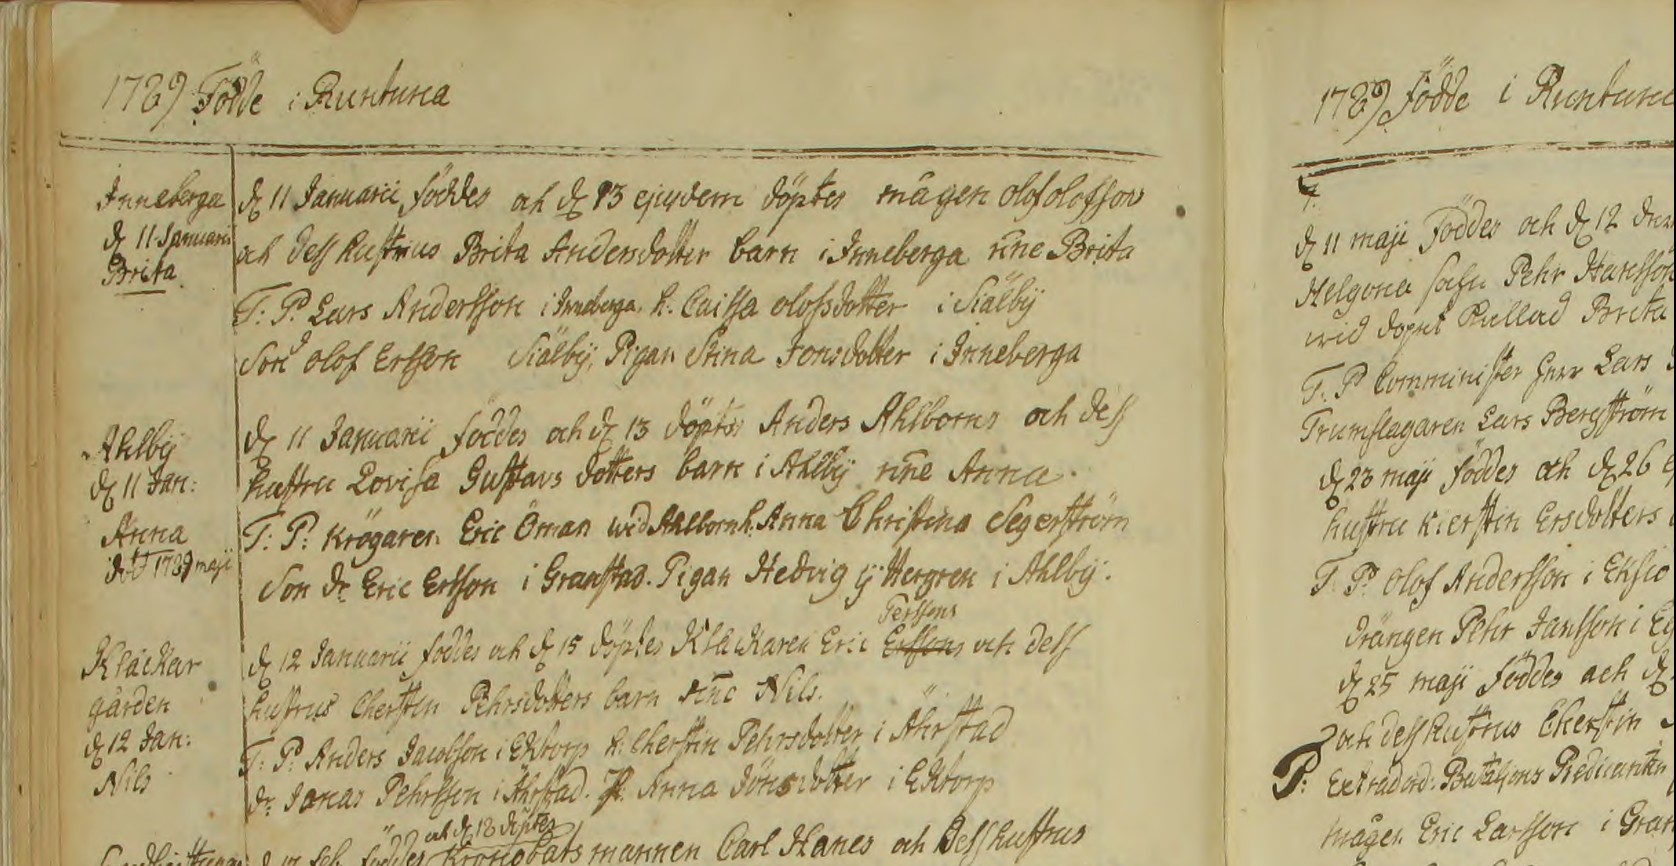 1789 Födde i Runtuna
Inneberga
d 11 Januarii
Brita
d 11 Januarii föddes och d 13 ejusdem döptes mågen olof olofsson
och dess hustrus Brita Andersdotter barn i Inneberga nne Brita
T: P. Lars Andersson i Inneberga. h. Caissa olofsdotter i Siälby
Son olof Ersson Siälby, Pigan Stina Jonsdotter i Inneberga
Ahlby
d 11 Jan:
Anna
död 1789 maji
d 11 Januarii föddes och d 13 döptes Anders Ahlborns och dess
hustru Lovisa Gustavs dotters barn i Ahlby nne Anna.
T: P: Krögaren Eric Öman wid Ahlborn h. Anna Christina Segerström
Son dr Eric Ersson i Granstad. Pigan Hedvig Hergren i Ahlby.
Kläckar
gården
d 12 Jan:
Nils
Perssons
d 12 Januarii föddes och d 15 döptes Kläckaren Eric Erssons och dess
hustrus Cherstin Pehrsdotters barn nne Nils.
T: P: Anders Jacobson i Ektorp h: Cherstin Pehrsdotter i Åhrstad
dr Jonas Pehrsson i Åhrstad. P. Anna Jönsdotter i Ektorp
och d 18 döptes
föddes Krono båtsmannen Carl Hanes och Dess hustrus
1789 födde i Runtuna
d 11 maji Föddes och d 12
Helgona Pehr Hansson
wid dopet kallad Brita
T: P Comminister Herr Lars
Trumslagaren Lars Bergström
d 23 maji föddes och d 26
hustru Kierstin Ersdotters
T: P. Olof Andersson i
drängen Pehr Jansson i
d 25 maji föddes och d
och dess hustrus Cherstin
P: Extraord: Bataljons Predicanten
mågen Eric Larsson i Gran